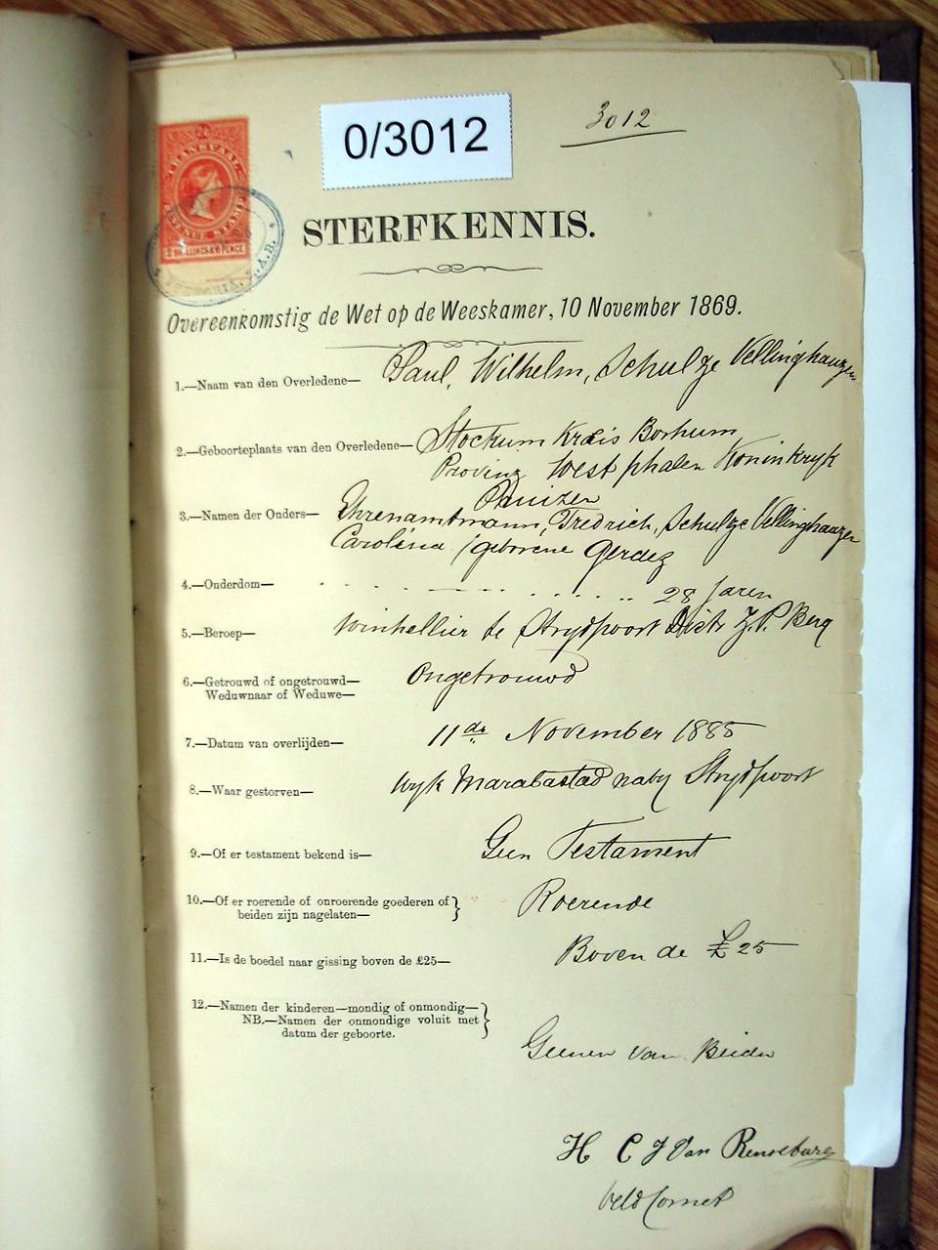 3012
0/3012
TRANSVAAL
2 SHILLINGS & 6 PENCE
Z.A.R.
STERFKENNIS.
Overeenkomstig de Wet op de Weeskamer, 10 November 1869.
1.—Naam van den Overledene— Paul, Wilhelm, Schulze Vellinghauzen
2.—Geboorteplaats van den Overledene— Stockum Krais Borhum
Provinz Westphalen Koninkryk
Pruizen
3.—Namen der Ouders— Ehrenamtmann, Fredrich, Schultze Vellinghauzen
Carolina /geborene Gerdez
4.—Onderdom— 28 Jaren
5.—Beroep— Winkellier te Strydpoort Distr Z.P. Berg
6.—Getrouwd of ongetrouwd— Ongetrouwd
Weduwnaar of Weduwe—
7.—Datum van overlijden— 11de November 1885
8.—Waar gestorven— Wyk Marabastad naby Strydpoort
9.—Of er testament bekend is— Geen Testament
10.—Of er roerende of onroerende goederen of Roerende
beiden zijn nagelaten—
11.—Is de boedel naar gissing boven de £25— Boven de £25
12.—Namen der kinderen—mondig of onmondig—
NB.—Namen der onmondige voluit met
datum der geboorte.
Geenen van Beiden
H C J Van Rensburg
Veld Cornet